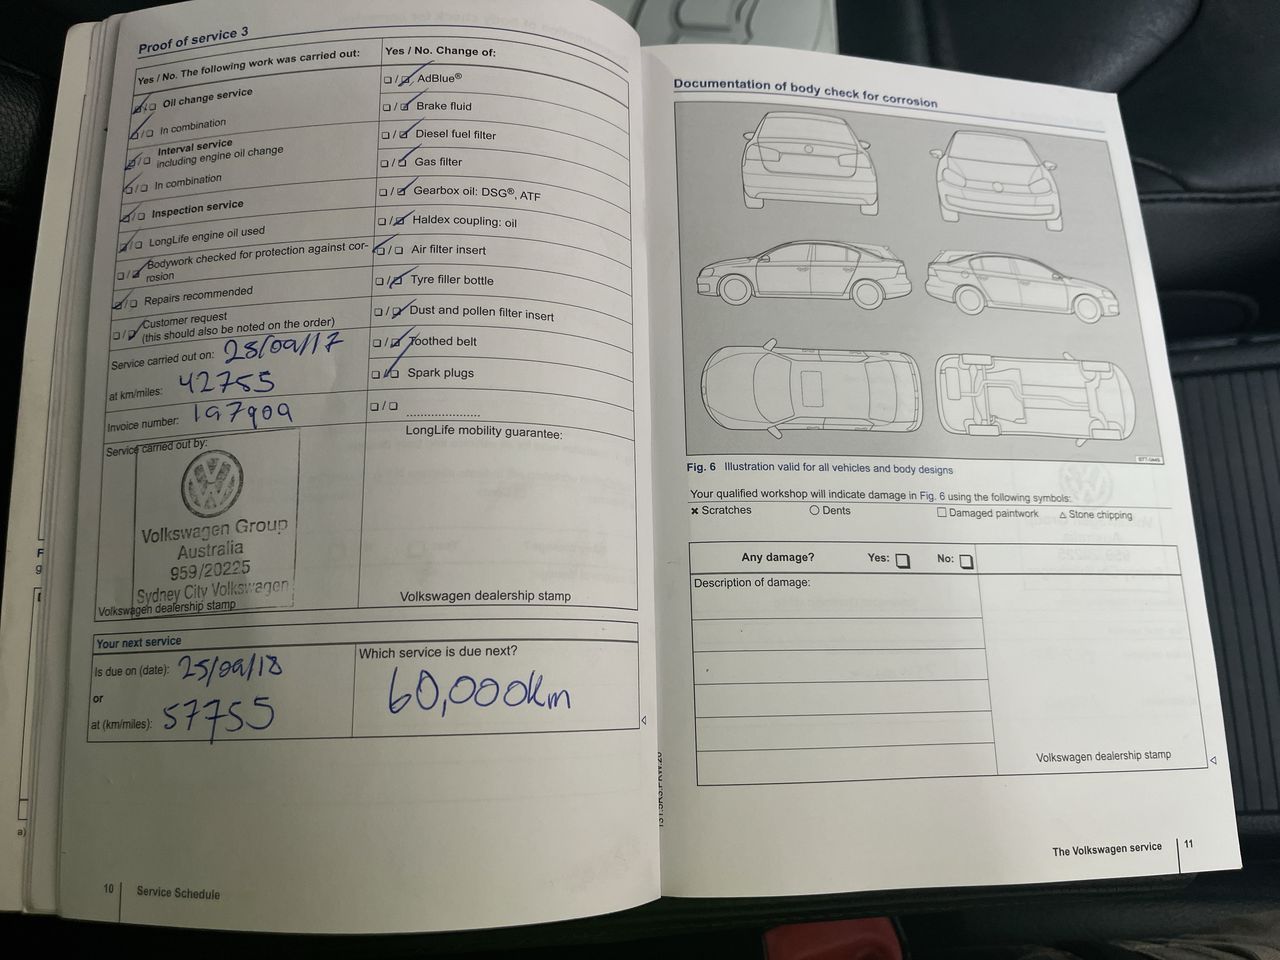 Proof of service 3
Yes / No. The following work was carried out:
Oil change service
In combination
Interval service
including engine oil change
In combination
Inspection service
LongLife engine oil used
Bodywork checked for protection against cor-
rosion
Repairs recommended
Customer request
(this should also be noted on the order)
Service carried out on: 25/09/17
at km/miles: 42755
Invoice number: 197909
Service carried out by:
Volkswagen Group
Australia
959/20225
Sydney City Volkswagen
Volkswagen dealership stamp
Yes / No. Change of:
AdBlue®
Brake fluid
Diesel fuel filter
Gas filter
Gearbox oil: DSG®, ATF
Haldex coupling: oil
Air filter insert
Tyre filler bottle
Dust and pollen filter insert
Toothed belt
Spark plugs
LongLife mobility guarantee:
Volkswagen dealership stamp
Your next service
Is due on (date): 25/09/18
or
at (km/miles): 57755
Which service is due next?
60,000km
10 Service Schedule
Documentation of body check for corrosion
Fig. 6 Illustration valid for all vehicles and body designs
Your qualified workshop will indicate damage in Fig. 6 using the following symbols:
× Scratches ○ Dents □ Damaged paintwork △ Stone chipping
Any damage? Yes: No:
Description of damage:
Volkswagen dealership stamp
The Volkswagen service 11